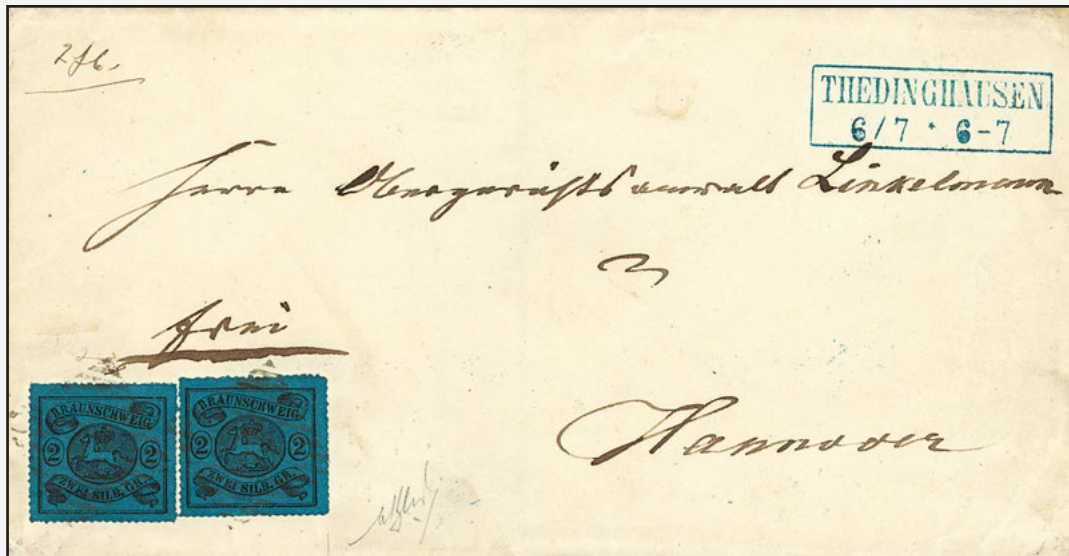 THEDINGHAUSEN
6/7 * 6-7
Herrn Obergerichtsanwalt Linkelmann
frei
BRAUNSCHWEIG
2 2
ZWEI SILB. GR.
BRAUNSCHWEIG
2 2
ZWEI SILB. GR.
Hannover